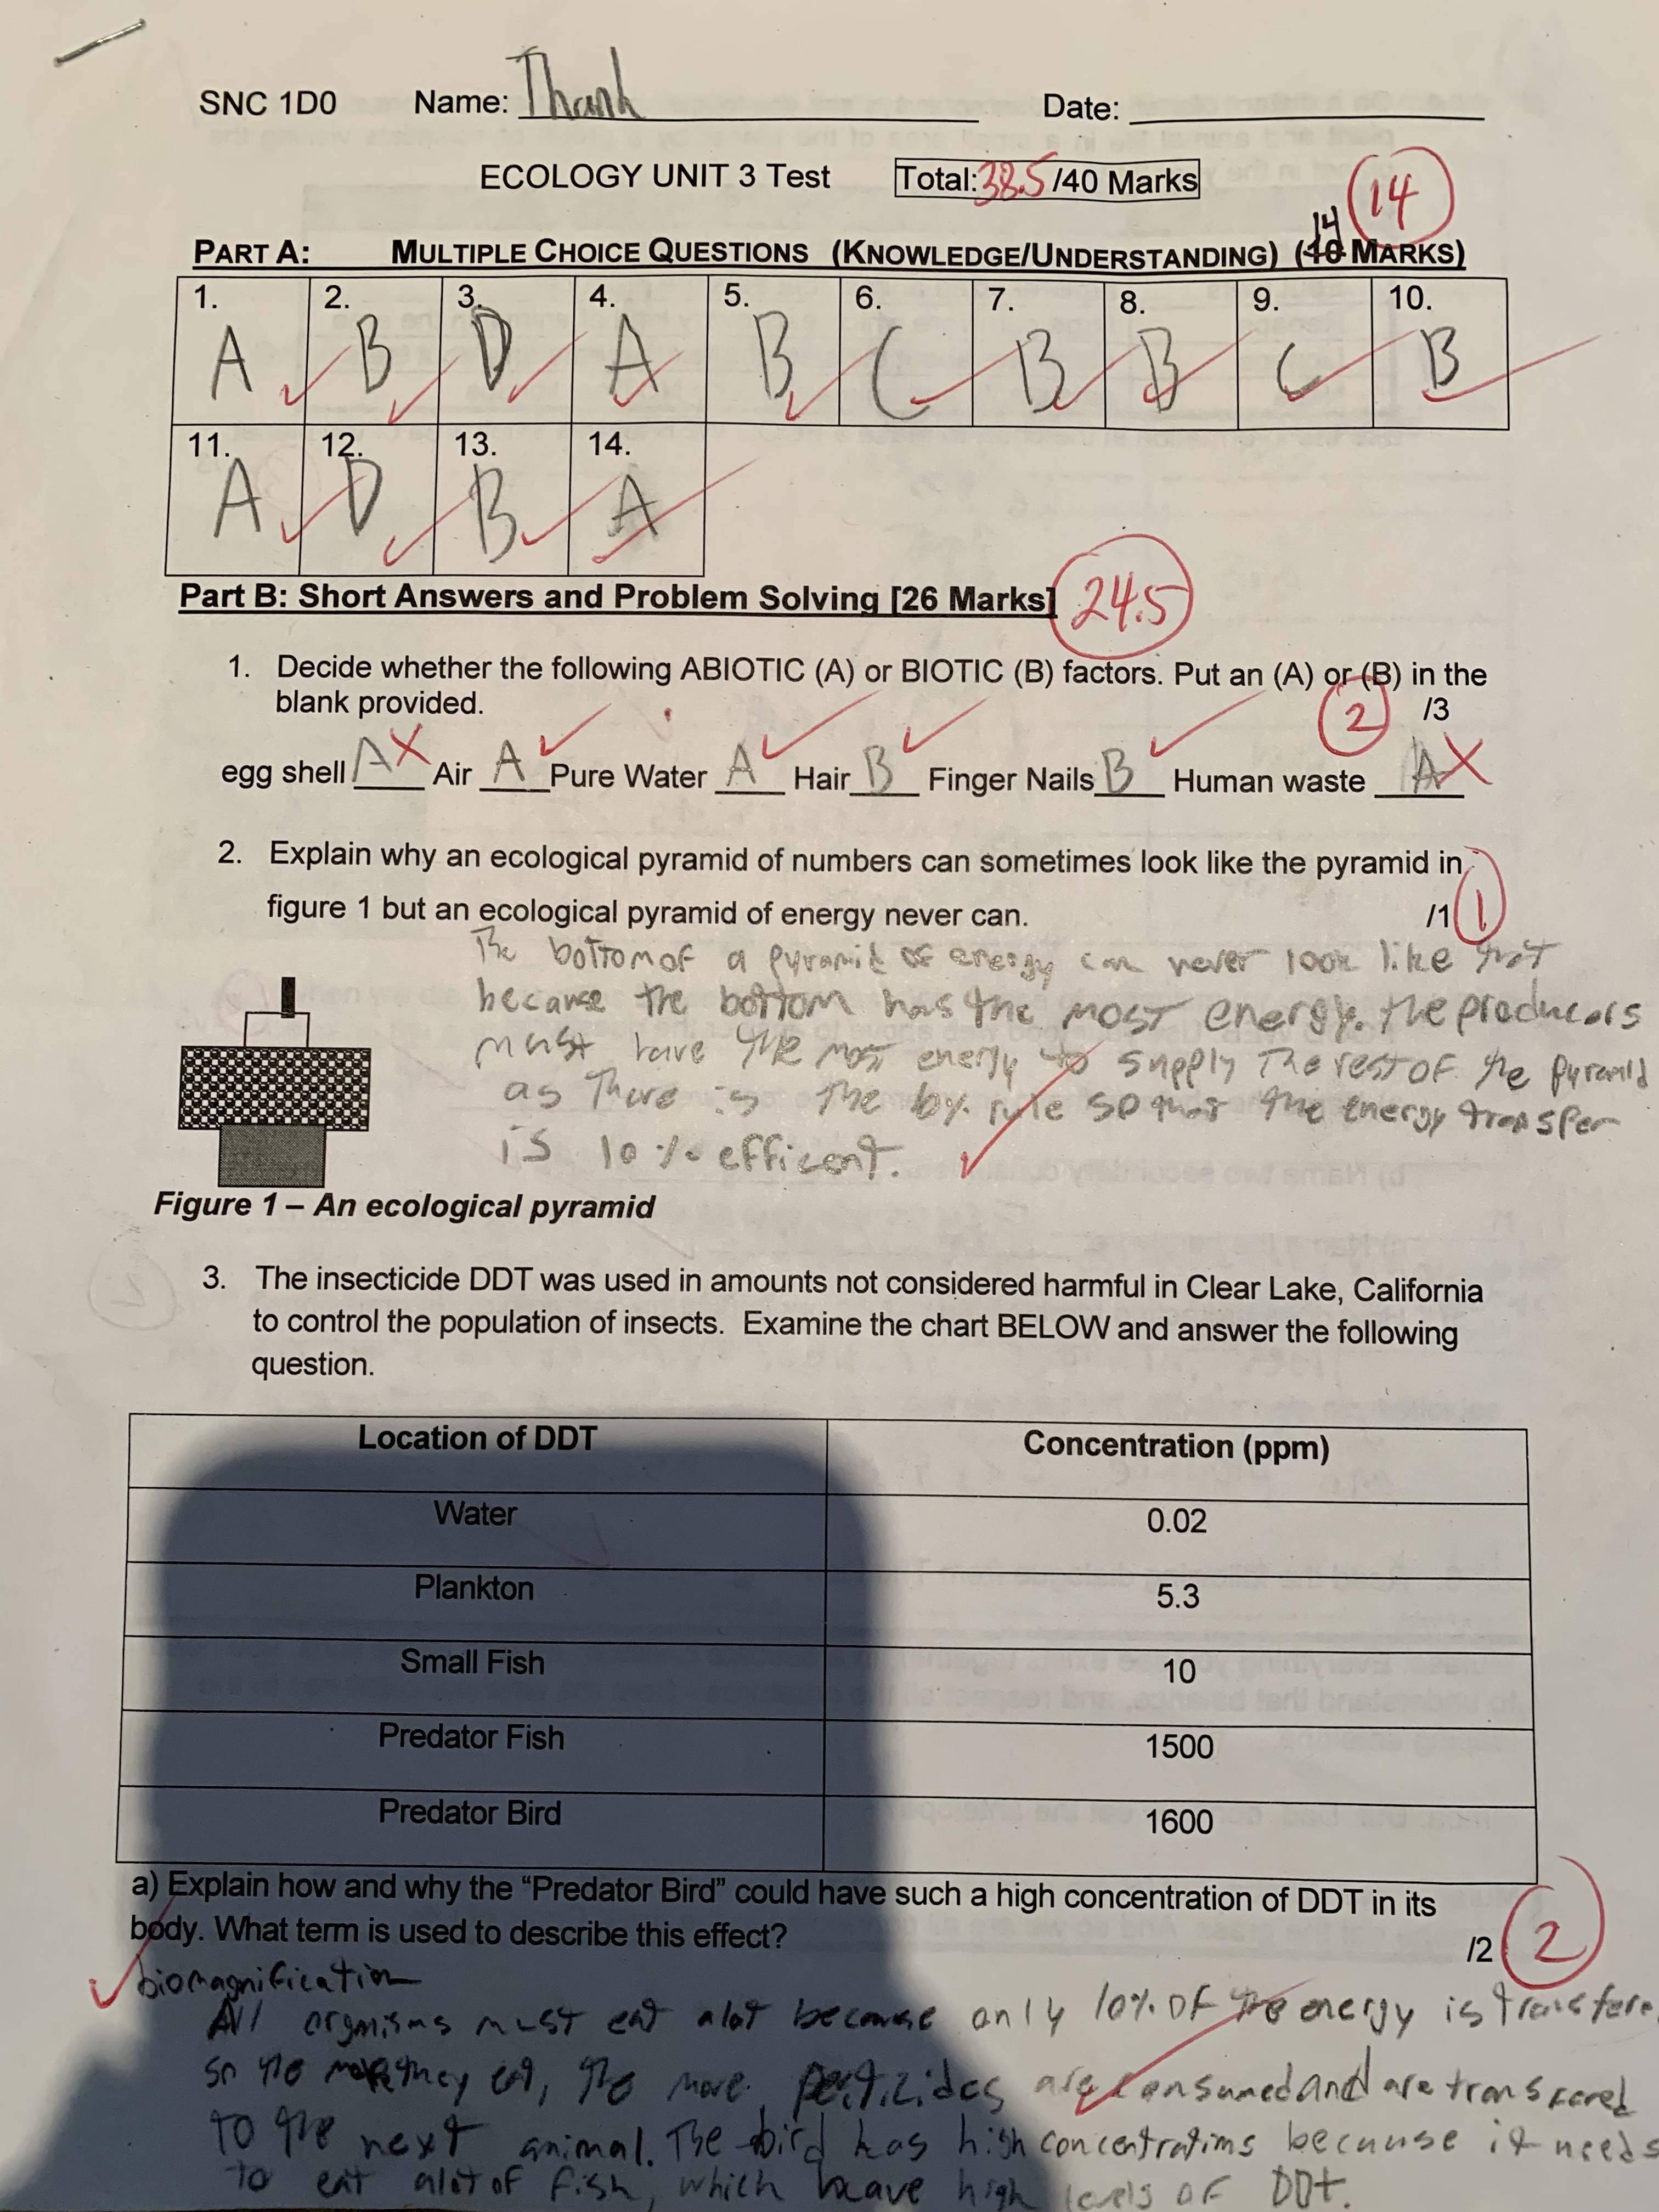 SNC 1D0 Name: Thank Date:
ECOLOGY UNIT 3 Test Total: 38.5 /40 Marks
14
14
PART A: MULTIPLE CHOICE QUESTIONS (KNOWLEDGE/UNDERSTANDING) (10 MARKS)
1. 2. 3. 4. 5. 6. 7. 8. 9. 10.
A B D A B C B B C B
11. 12. 13. 14.
A D B A
Part B: Short Answers and Problem Solving [26 Marks] 24.5
1. Decide whether the following ABIOTIC (A) or BIOTIC (B) factors. Put an (A) or (B) in the
blank provided. 2 /3
egg shell A Air A Pure Water A Hair B Finger Nails B Human waste A
2. Explain why an ecological pyramid of numbers can sometimes look like the pyramid in
figure 1 but an ecological pyramid of energy never can. /1 1
The bottom of a pyramid of energy can never look like that
because the bottom has the most energy. The producers
must have the most energy to supply the rest of the pyramid
as there is the 10% rule so that the energy transfer
is 10% efficent.
Figure 1 – An ecological pyramid
3. The insecticide DDT was used in amounts not considered harmful in Clear Lake, California
to control the population of insects. Examine the chart BELOW and answer the following
question.
Location of DDT Concentration (ppm)
Water 0.02
Plankton 5.3
Small Fish 10
Predator Fish 1500
Predator Bird 1600
a) Explain how and why the “Predator Bird” could have such a high concentration of DDT in its
body. What term is used to describe this effect? /2 2
biomagnification
All orgnisms must eat alot because only 10% of the energy is transfere
so the more they eat, the more are consumed and are transfered
to the next animal. The bird has high concentrations because it needs
to eat alot of fish, which have high levels of DDT.